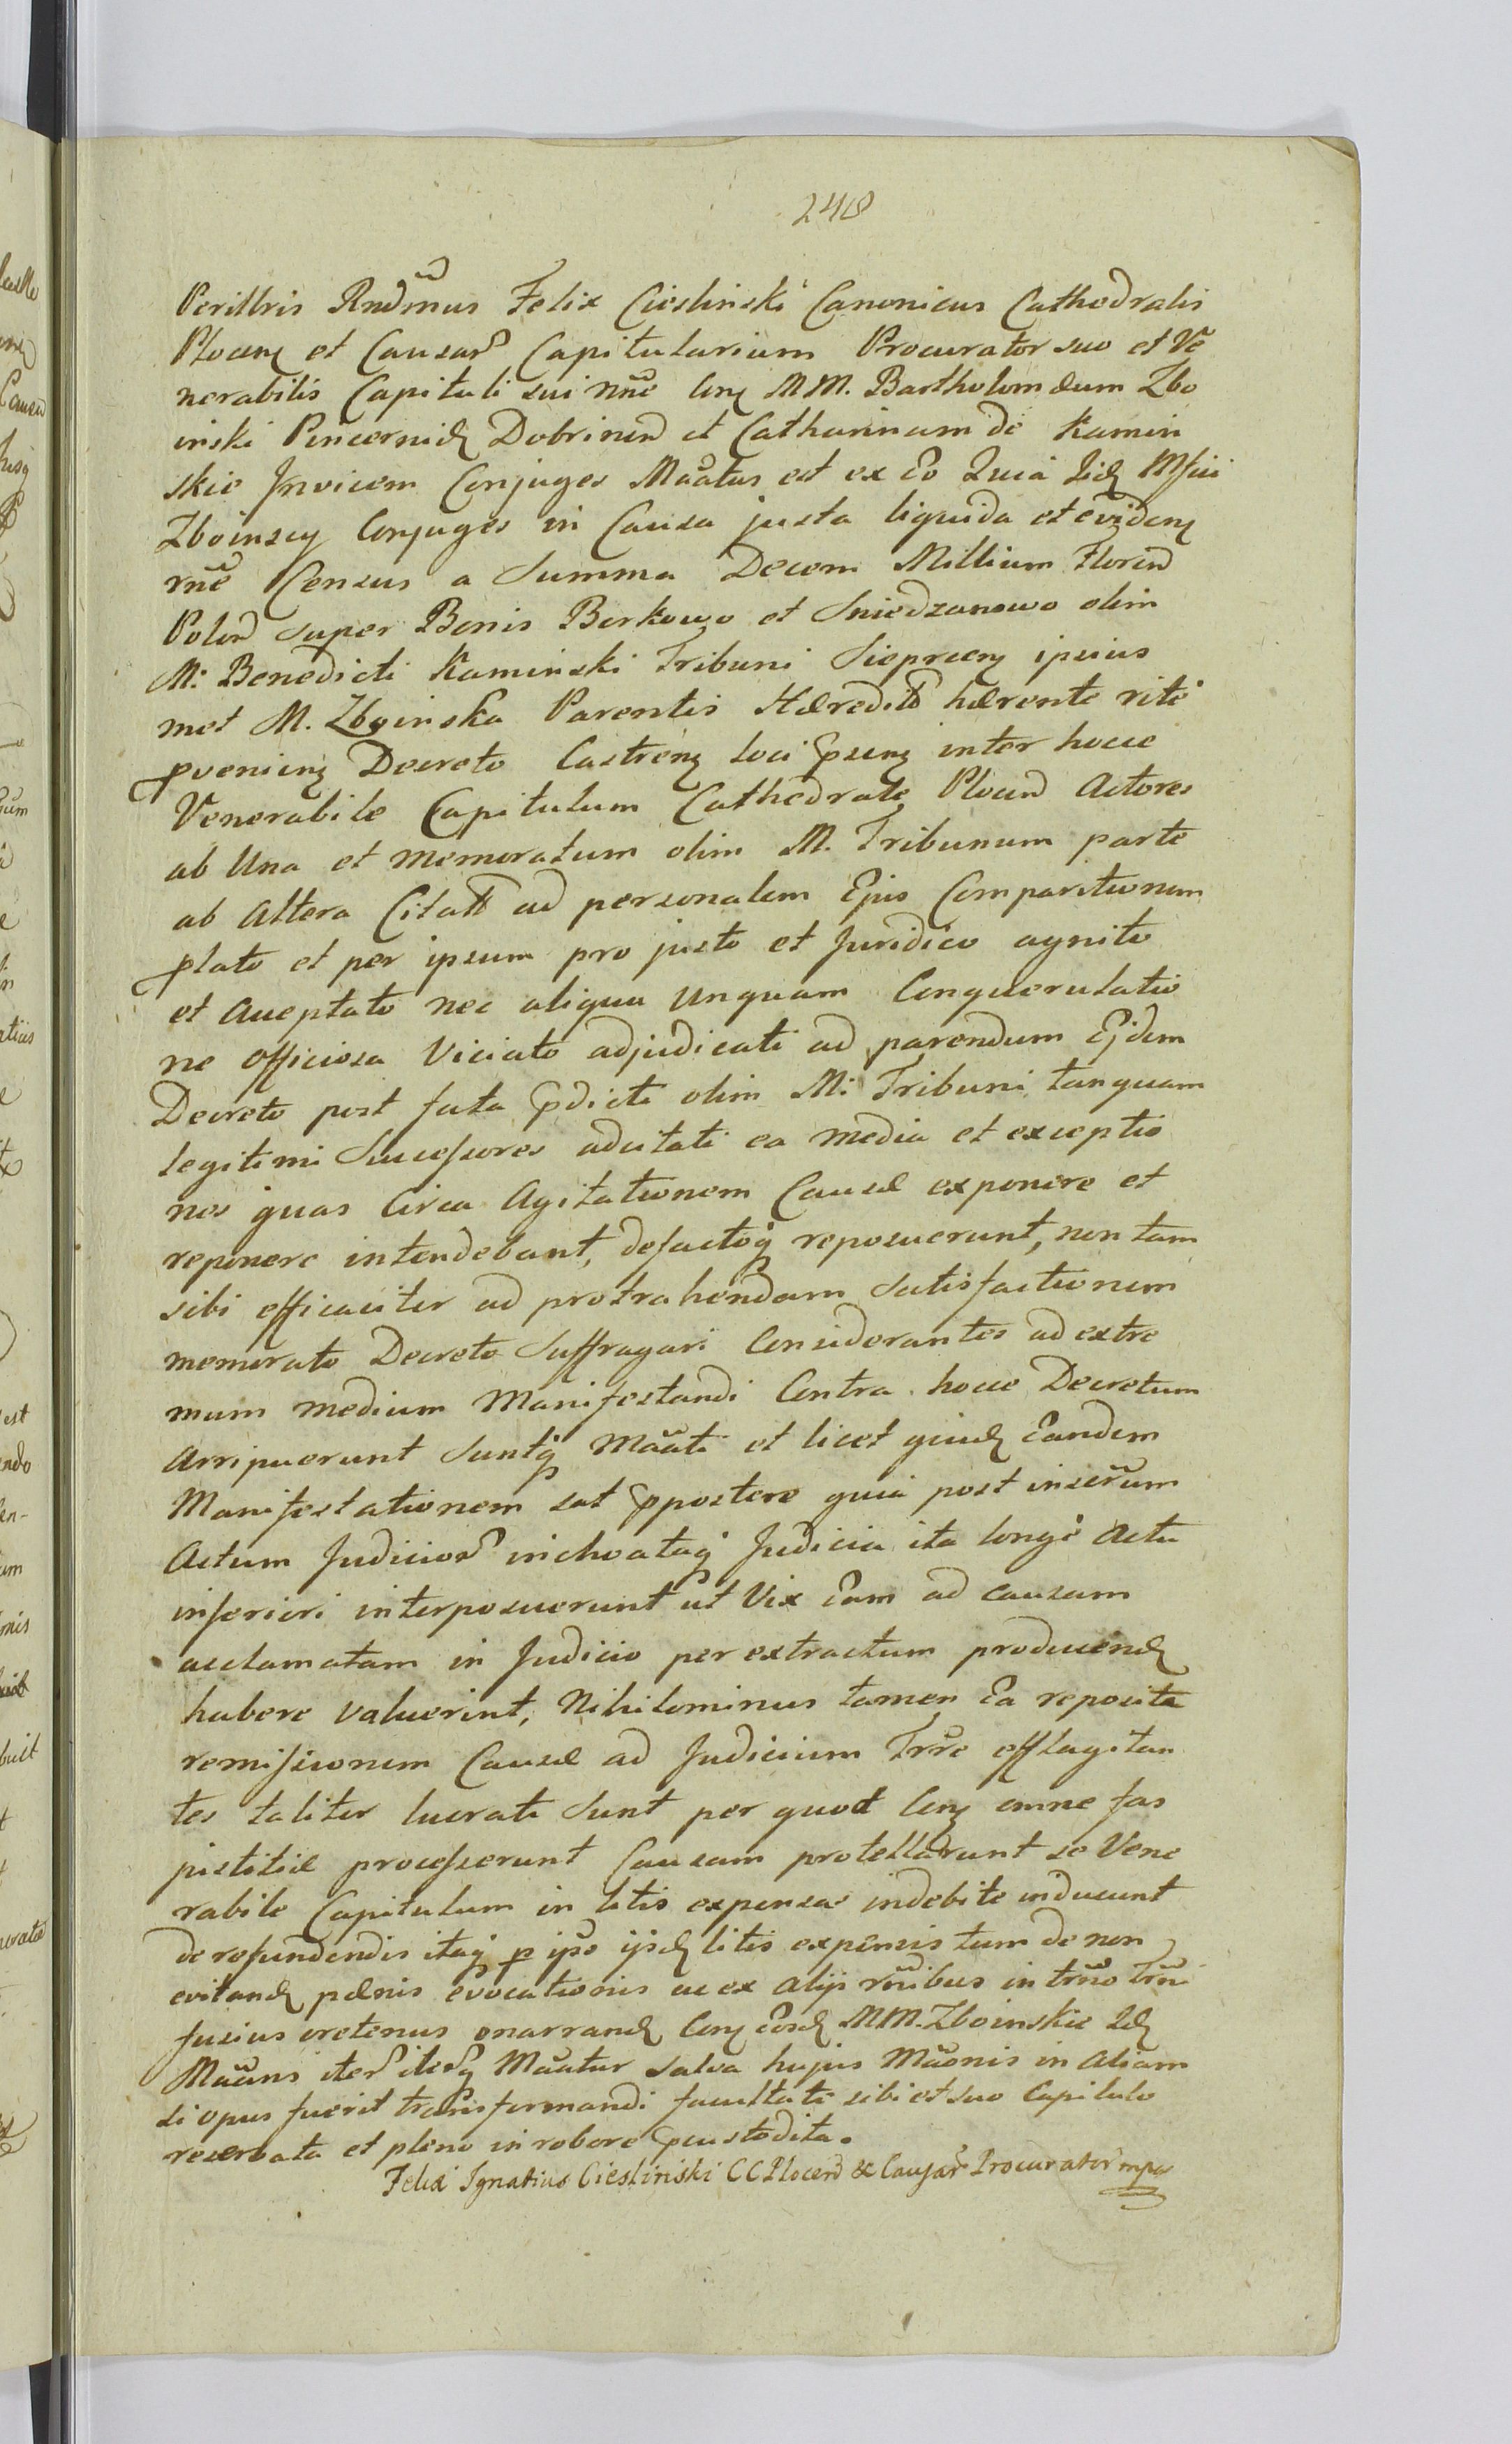 248
Perillris Rndmus Felix Ciesliński Canonicus Cathedralis
Plocen et Causar Capitularium Procurator suo et Ve
nerabilis Capituli sui nne Con MM. Bartholomæum Zbo
inski Pincernid Dobrinen et Catharinam de Kamin
skie Invicem Conjuges Maatus est ex Eo Quia Iid Mfici
Zboinscy Conjuges in Causa justa liquida et eviden
rne Census a Summa Decem Millium Floren
Polon super Bonis Borkowo et Sniedzanowo olim
M: Benedicti Kaminski Tribuni Sieprcen ipsius
met M. Zboinska Parentis Hæredit hærente rite
pvenien Decreto Castren loci psen inter hocce
Venerabile Capitulum Cathedrale Plocen Actores
ab Una et memoratum olim M. Tribunum parte
ab altera Citatt ad personalem Ejus Comparitionem
plato et per ipsum pro justo et Juridico agnito
et acceptato nec aliqua unquam Conquerulatio
ne officiosa Viciato adjudicati ad parendum Ejdem
Decreto post fata pdicti olim M: Tribuni tanquam
legitimi Successores adcitati ea media et exceptio
nes quas Circa Agitationem Causæ exponere et
reponere intendebant, defactoq reposuerunt, non tam
sibi efficaciter ad protrahendam Satisfactionem
memorato Decreto Suffragari Considerantes ad extre
mum medium Manifestandi Contra hocce Decretum
arripuerunt Suntq Maati et licet quid Eandem
Manifestationem sat ppostere quia post inserum
Actum Judicior inchoataq Judicia ita longe Actu
inferiori interposuerunt ut Vix Eam ad causam
acclamatam in Judicio per extractum producend
habere valuerint, Nihilominus tamen Ea reposita
remissionem Causæ ad Judicium Trre efflagitan
tes taliter lucrati Sunt per quod Con omne fas
justitiæ processerunt Causam protellarunt se Vene
rabile Capitulum in litis expensas indebite inducunt
de refundendis itaq p ipso ijsd litis expensis tum de non
evitand pænis evocationis ac ex alijs rnnibus in trno Trn
fusius oretenus enarrand Con Eosd MM. Zboinskie Id
Maans iter iterq Maatur salva hujus Maonis in Aliam
si opus fuerit transformandi facultate sibi et suo Capitulo
reservata et pleno in robore pcustodita.
Felix Ignatius Ciesliński CC Plocen & Causar Procurator mpa